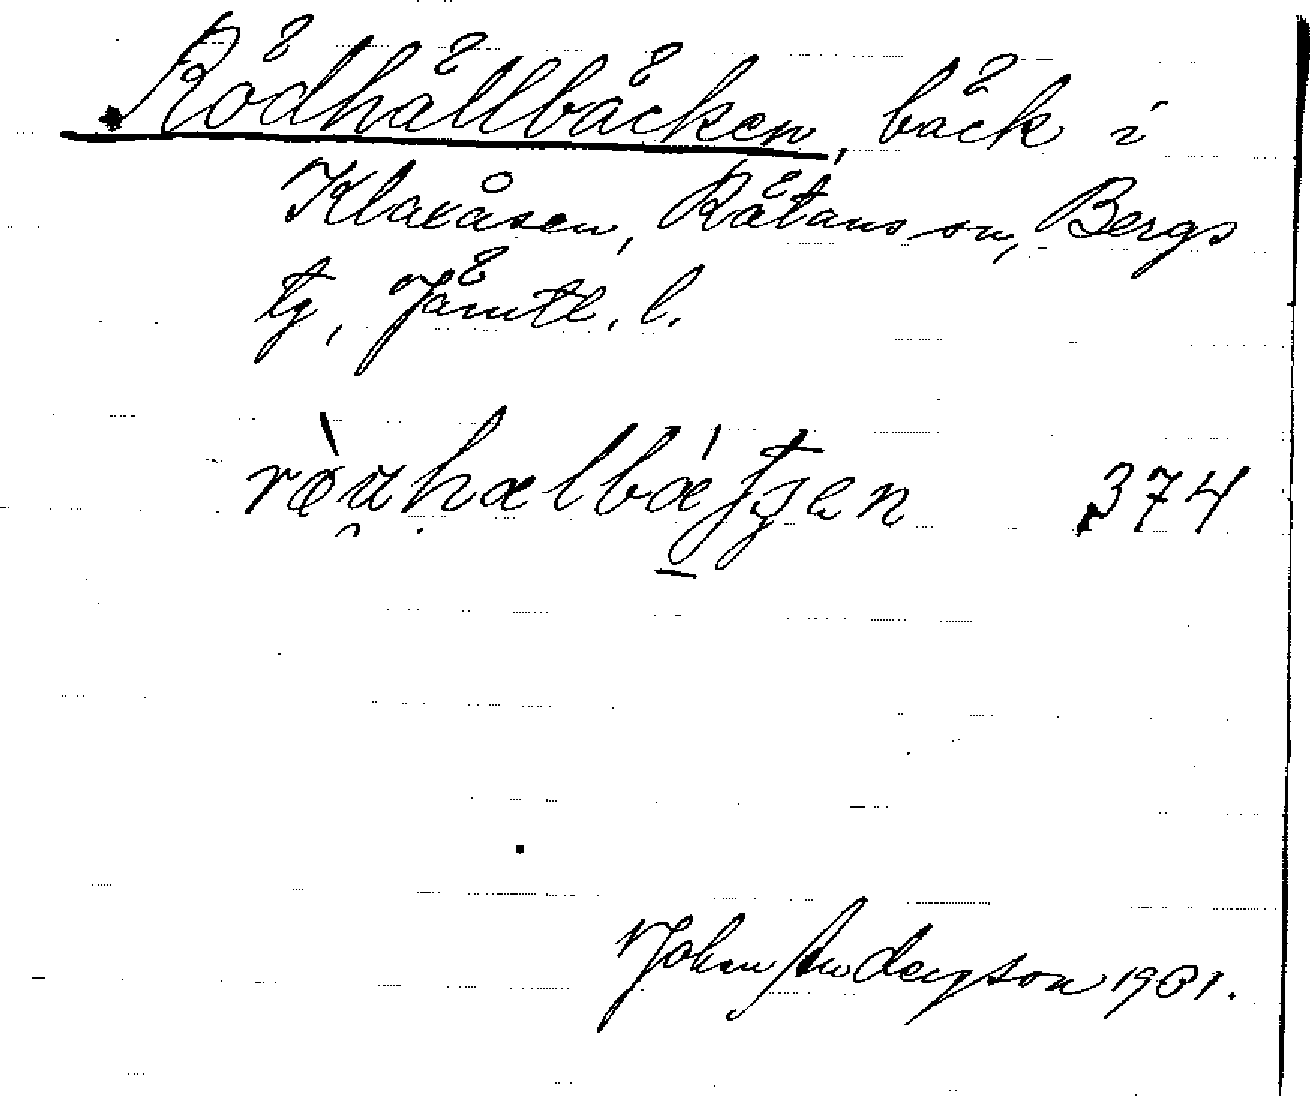 Rödhällbäcken, bäck i
Klaxåsen, Rätans sn, Bergs
tg, Jämtl. l.
374
John Anderson 1901.